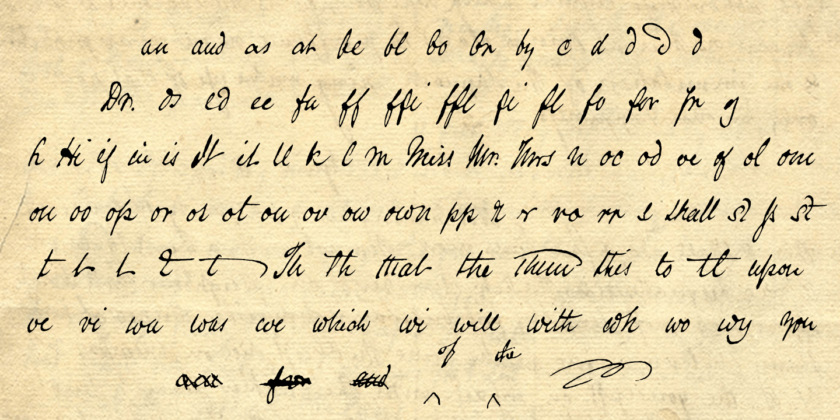 an and as at be bl bo br by c d d d d
Dr. ds ed ee fa ff ffi ffl fi fl fo for fr g
h Hi if in is It it ll k l m Miss Mr. Mrs n oc od oe of ol om
on oo op or os ot ou ov ow own pp r r ro rr s shall st ſs st
t t t t t Th Th that the Them this to tt upon
ve vi wa was we which wi will with wh wo wy you
of the
an for and ^ ^